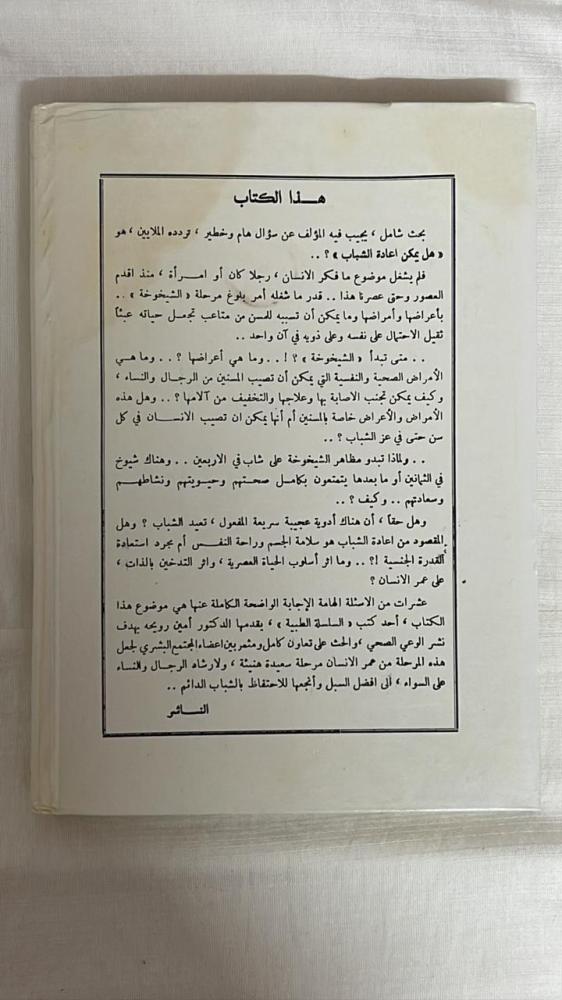 هـــذا الكتاب
بحث شامل ، يجيب فيه المؤلف عن سؤال هام وخطير ، تردده الملايين ، هو
« هل يمكن اعادة الشباب » ؟ ..
فلم يشغل موضوع ما فكر الانسان ، رجلا كان أو امـرأة ، منذ اقدم
العصور وحتى عصرنا هذا .. قدر ما شغله أمر بلوغ مرحلة « الشيخوخة » ..
بأعراضها وأمراضها وما يمكن أن تسببه للمسن من متاعب تجعـل حياته عبئاً
ثقيل الاحتمال على نفسه وعلى ذويه في آن واحد ..
. . متى تبدأ « الشيخوخة » ؟! . . وما هي أعراضها ؟ . . وما هـي
الأمراض الصحية والنفسية التي يمكن أن تصيب المسنين من الرجـال والنساء ،
وكيف يمكن تجنب الاصابة بها وعلاجها والتخفيف من آلامها ؟ . . وهل هذه
الأمراض والأعراض خاصة بالمسنين أم أنها يمكن ان تصيب الانســان في كل
سن حتى في عز الشباب ؟ ..
. . ولماذا تبدو مظاهر الشيخوخة على شاب في الاربعين . . وهناك شيوخ
في الثمانين أو ما بعدها يتمتعون بكامـل صحـتهم وحيـويتهم ونشاطهـم
وسعادتهم .. وكيف ؟ ..
وهل حقاً ، أن هناك أدوية عجيبة سريعة المفعول ، تعيد الشباب ؟ وهل
المقصود من اعادة الشباب هو سلامة الجسم وراحة النفـس أم مجرد استعـادة
القدرة الجنسية !؟ .. وما اثر أسلوب الحياة العصرية ، واثر التدخين بالذات ،
على عمر الانسان ؟
عشرات من الاسئلة الهامة الإجابة الواضحة الكاملة عنها هي موضوع هذا
الكتاب ، أحد كتب « السلسلة الطبية » ، يقدمها الدكتور أمين رويحه بهدف
نشر الوعي الصحي ، والحث على تعاون كامل ومثمر بين اعضاء المجتمع البشري لجعل
هذه المرحلة من عمر الانسان مرحلة سعيدة هنيئة ، ولارشاد الرجـال والنساء
على السواء ، الى افضل السبل وأنجعها للاحتفاظ بالشباب الدائم ..
النـــاشر